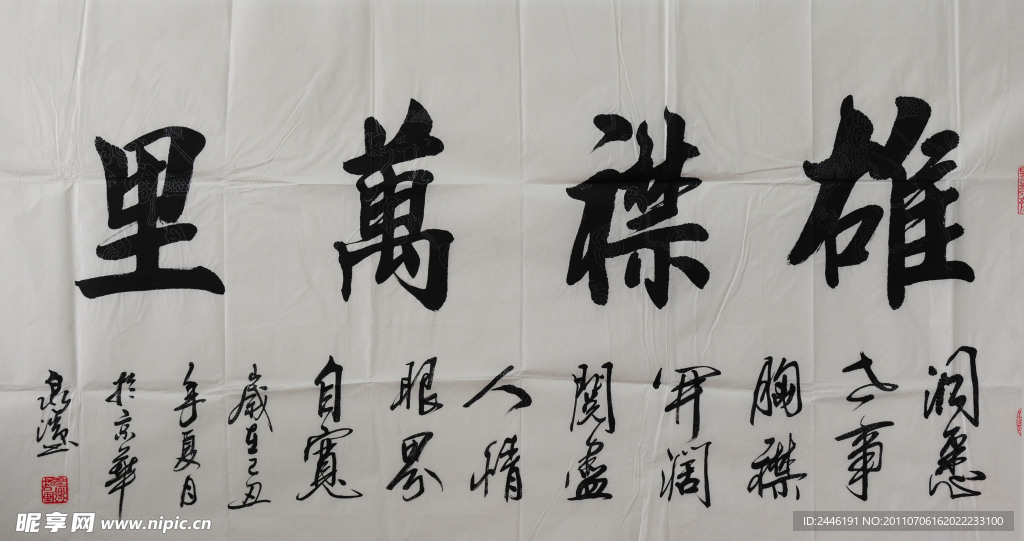 雄襟萬里
洞悉
世事
胸襟
開闊
閱盡
人情
眼界
自寬
歲在己丑
年夏月
於京華
昵享网 www.nipic.cn
ID:2446191 NO:20110706162022233100